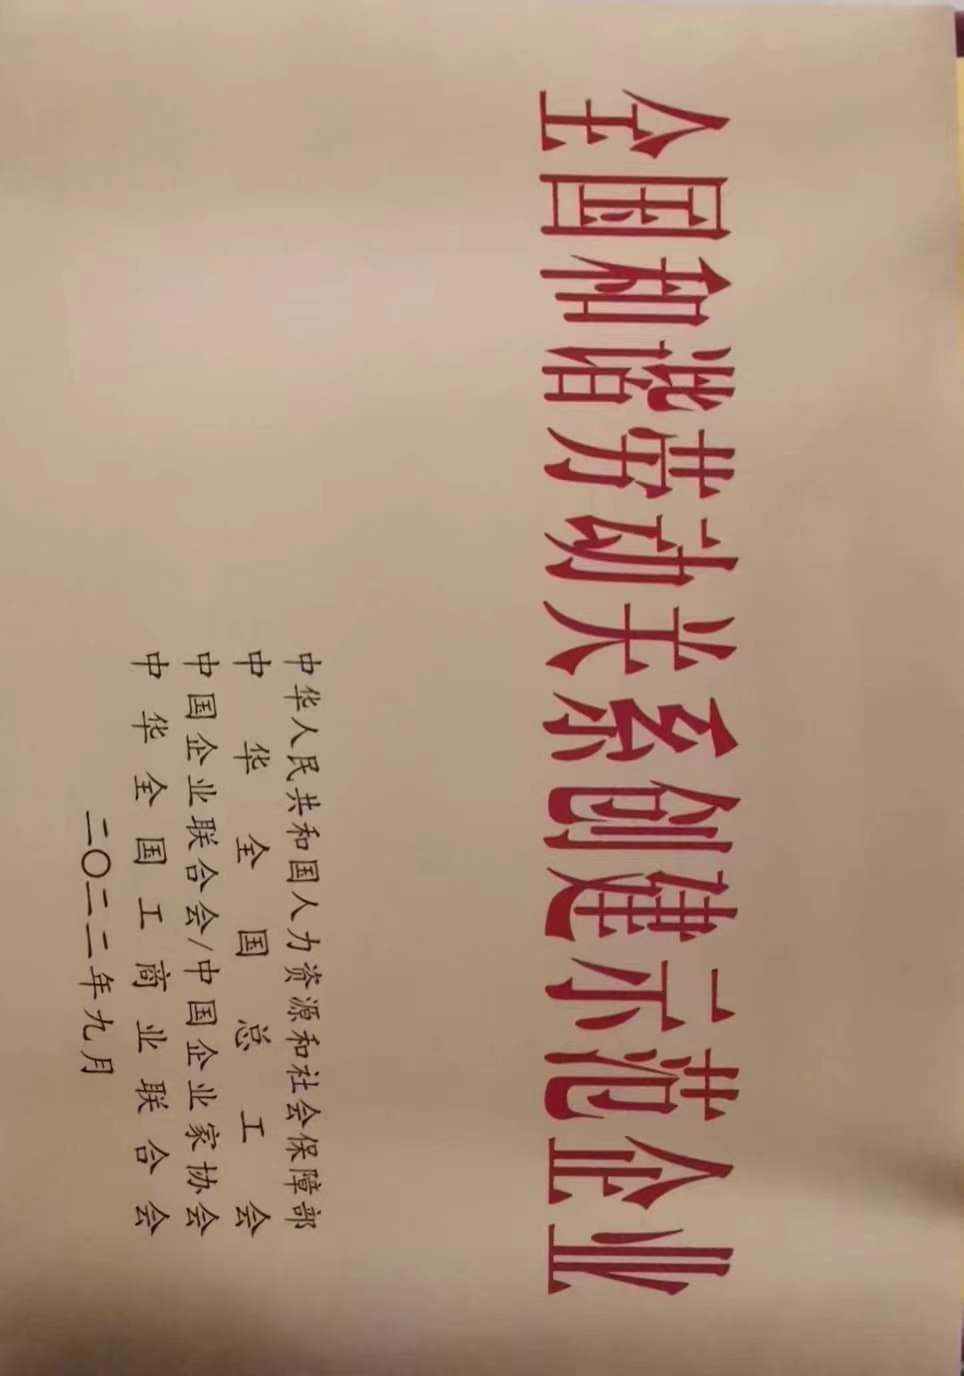 全国和谐劳动关系创建示范企业
中华人民共和国人力资源和社会保障部
中华全国总工会
中国企业联合会/中国企业家协会
中华全国工商业联合会
二〇二二年九月